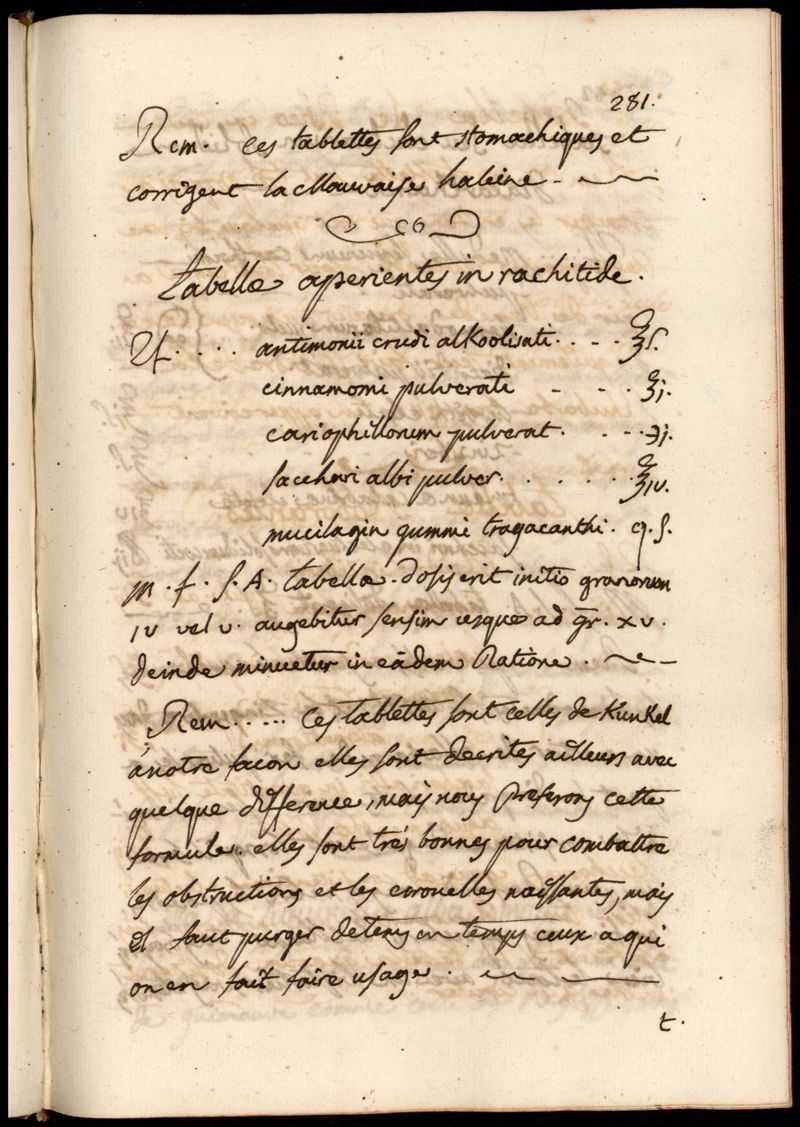 281.
Rem. ces tablettes sont stomachiques et
corrigent la Mauvaise haleine.
tabellæ aperientes in rachitide.
♃. . . . antimonii crudi alkoolisati. . . . ℥ſ.
cinnamomi pulverati - . . ℥j.
cariophillorum pulverat. . . . ℈j.
sacchari albi pulver. . . . . . . ℥iv.
mucilagin gummi tragacanthi. q. s.
m. f. S. A. tabellæ. dosis erit initio granorum
iv vel v. augebitur sensim usque ad gr. xv.
deinde minuetur in eâdem Ratione.
Rem. . . . . Ces tablettes sont celles de Kunkel
à notre facon elles sont decrites ailleurs avec
quelque difference, mais nous Preferons cette
formule. elles sont trés bonnes pour combattre
les obstructions et les ecrouelles naissantes, mais
il faut purger de tems en temps ceux a qui
on en fait faire usage.
t.